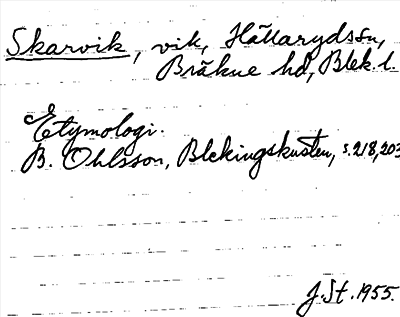 Skarvik, vik, Hällarydssn,
Bräkne hd, Blek. l.
Etymologi.
B. Ohlsson, Blekingskusten, s. 218, 203
J. St. 1955.